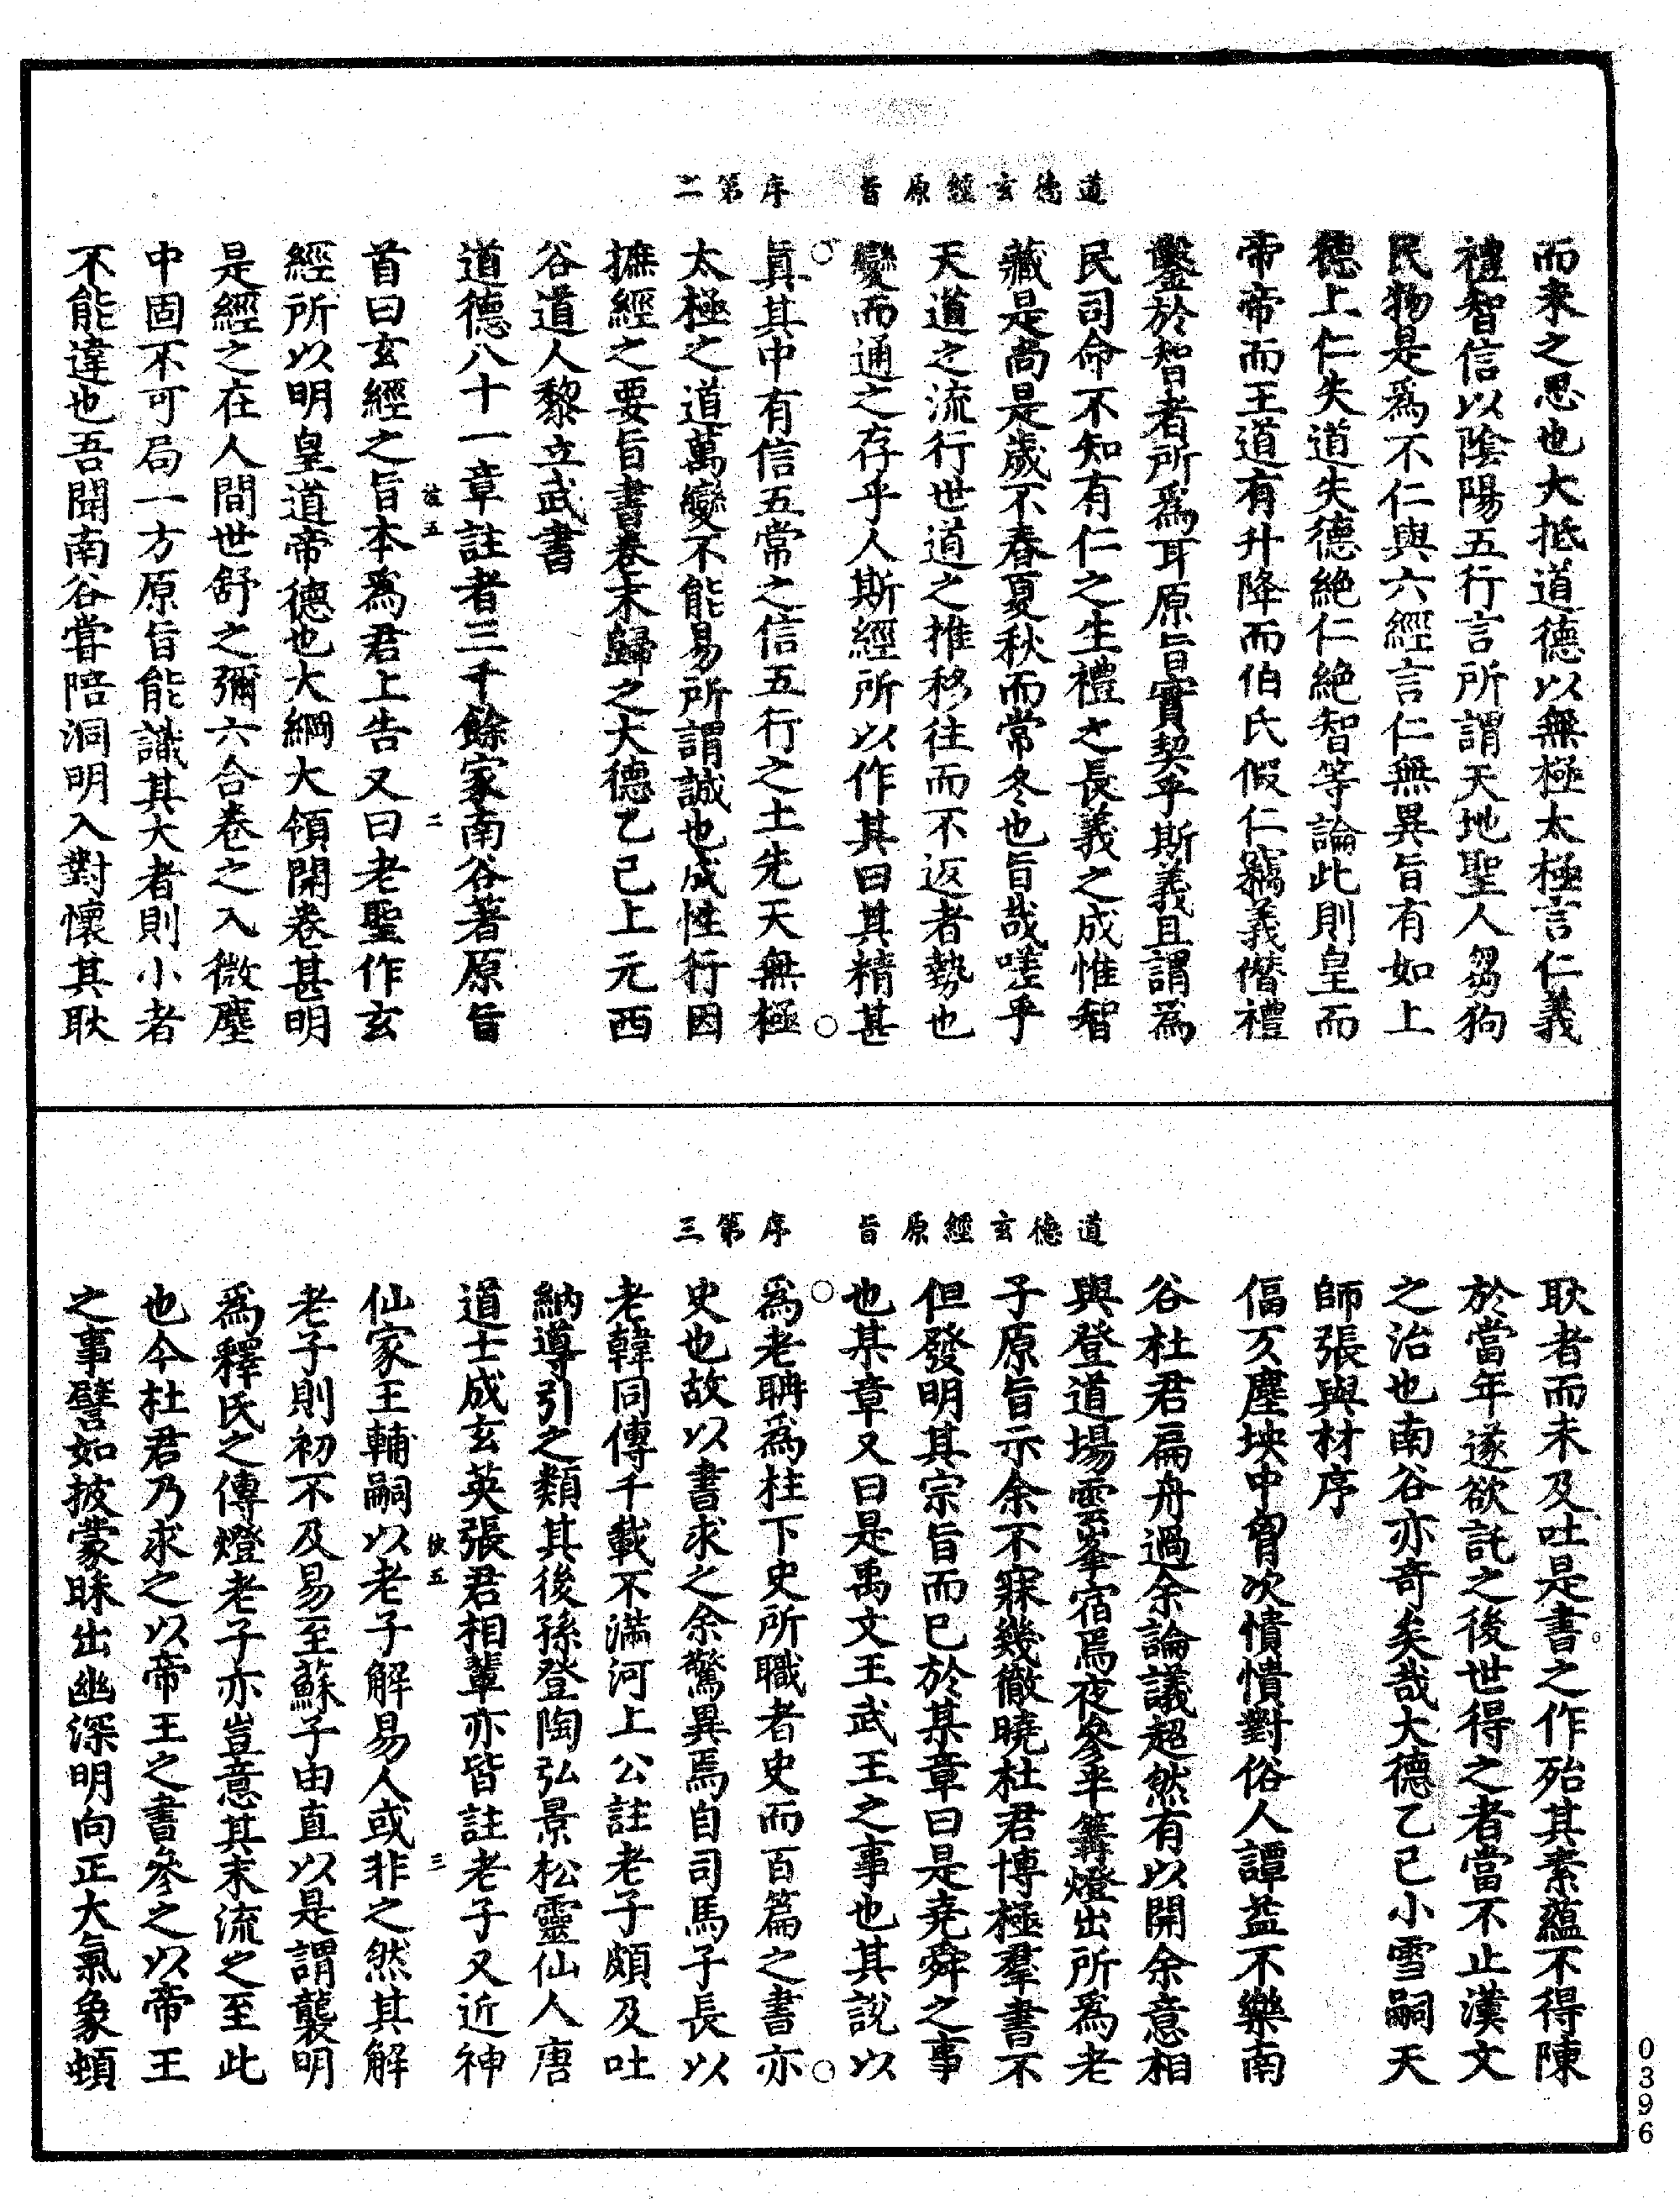 道德玄經原旨　序第二
而來之思也大抵道德以無極太極言仁義
禮智信以陰陽五行言所謂天地聖人芻狗
民物是爲不仁與六經言仁無異旨有如上
德上仁失道失德絶仁絶智等論此則皇而
帝帝而王道有升降而伯氏假仁竊義僭禮
鑿於智者所爲耳原旨實契乎斯義且謂爲
民司命不知有仁之生禮之長義之成惟智
藏是尚是歲不春夏秋而常冬也旨哉嗟乎
天道之流行世道之推移往而不返者勢也
變而通之存乎人斯經所以作其曰其精甚
眞其中有信五常之信五行之土先天無極
太極之道萬變不能易所謂誠也成性行因
摭經之要旨書卷末歸之大德乙已上元西
谷道人黎立武書
道德八十一章註者三千餘家南谷著原旨
首曰玄經之旨本爲君上告又曰老聖作玄
經所以明皇道帝德也大綱大領開卷甚明
是經之在人間世舒之彌六合卷之入微塵
中固不可局一方原旨能識其大者則小者
不能違也吾聞南谷嘗陪洞明入對懷其耿
道德玄經原旨　序第三
耿者而未及吐是書之作殆其素蘊不得陳
於當年遂欲託之後世得之者當不止漢文
之治也南谷亦奇矣哉大德乙已小雪嗣天
師張與材序
偪仄塵坱中胷次憒憒對俗人譚益不樂南
谷杜君扁舟過余論議超然有以開余意相
與登道場雲峯宿焉夜參半篝燈出所爲老
子原旨示余不寐幾徹曉杜君博極羣書不
但發明其宗旨而已於某章曰是堯舜之事
也某章又曰是禹文王武王之事也其說以
爲老聃爲柱下史所職者史而百篇之書亦
史也故以書求之余驚異焉自司馬子長以
老韓同傳千載不滿河上公註老子頗及吐
納導引之類其後孫登陶弘景松靈仙人唐
道士成玄英張君相輩亦皆註老子又近神
仙家王輔嗣以老子解易人或非之然其解
老子則初不及易至蘇子由直以是謂襲明
爲釋氏之傳燈老子亦豈意其末流之至此
也今杜君乃求之以帝王之書參之以帝王
之事譬如披蒙昧出幽深明向正大氣象頓
0396